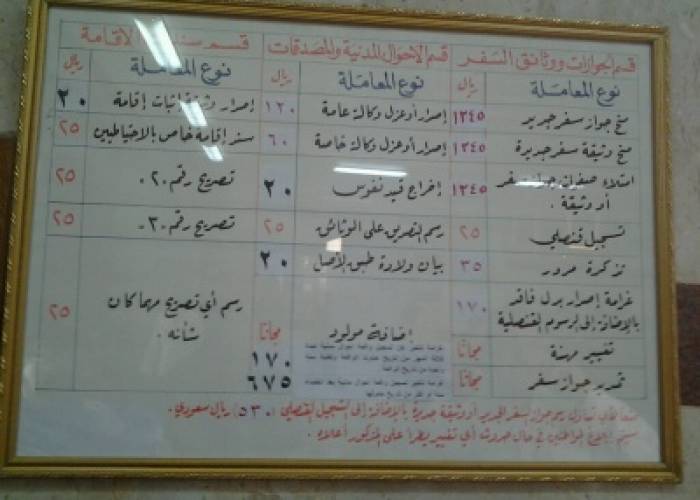 قسم الجوازات ووثائق السفر
نوع المعاملة ريال
منح جواز سفر جديد ١٢٤٥
منح وثيقة سفر جديدة ١٢٤٥
امتلاء صفحات جواز سفر ١٢٤٥
أو وثيقة .
تسجيل قنصلي ٢٥
تذكرة مرور ٣٥
غرامة إصدار بدل فاقد ١٧٠
بالإضافة إلى الرسوم القنصلية
تغيير مهنة مجاناً
تمديد جواز سفر مجاناً
قسم الأحوال المدنية والمصدقات
نوع المعاملة ريال
إصدار أو عزل وكالة عامة ١٢٠
إصدار أو عزل وكالة خاصة ٦٠
إخراج قيد نفوس ٢٠
رسم التصديق على الوثائق ٢٥
بيان ولادة طبق الأصل ٢٠
إضافة مولود مجاناً
١٧٠
٦٧٥
قسم الاقامة
نوع المعاملة ريال
إصدار وثيقة إثبات إقامة ٢٠
سند إقامة خاص بالاحتياطيين ٢٥
تصريح رقم ٢٠ ٢٥
تصريح رقم ٣٠ ٢٥
رسم أي تصريح مهما كان ٢٥
شأنه .
رسم جواز السفر الجديد أو وثيقة جديدة بالإضافة إلى التسجيل القنصلي (٥٣٠) ريال سعودي .
في حال حدوث أي تغيير يطرأ على المذكور أعلاه .